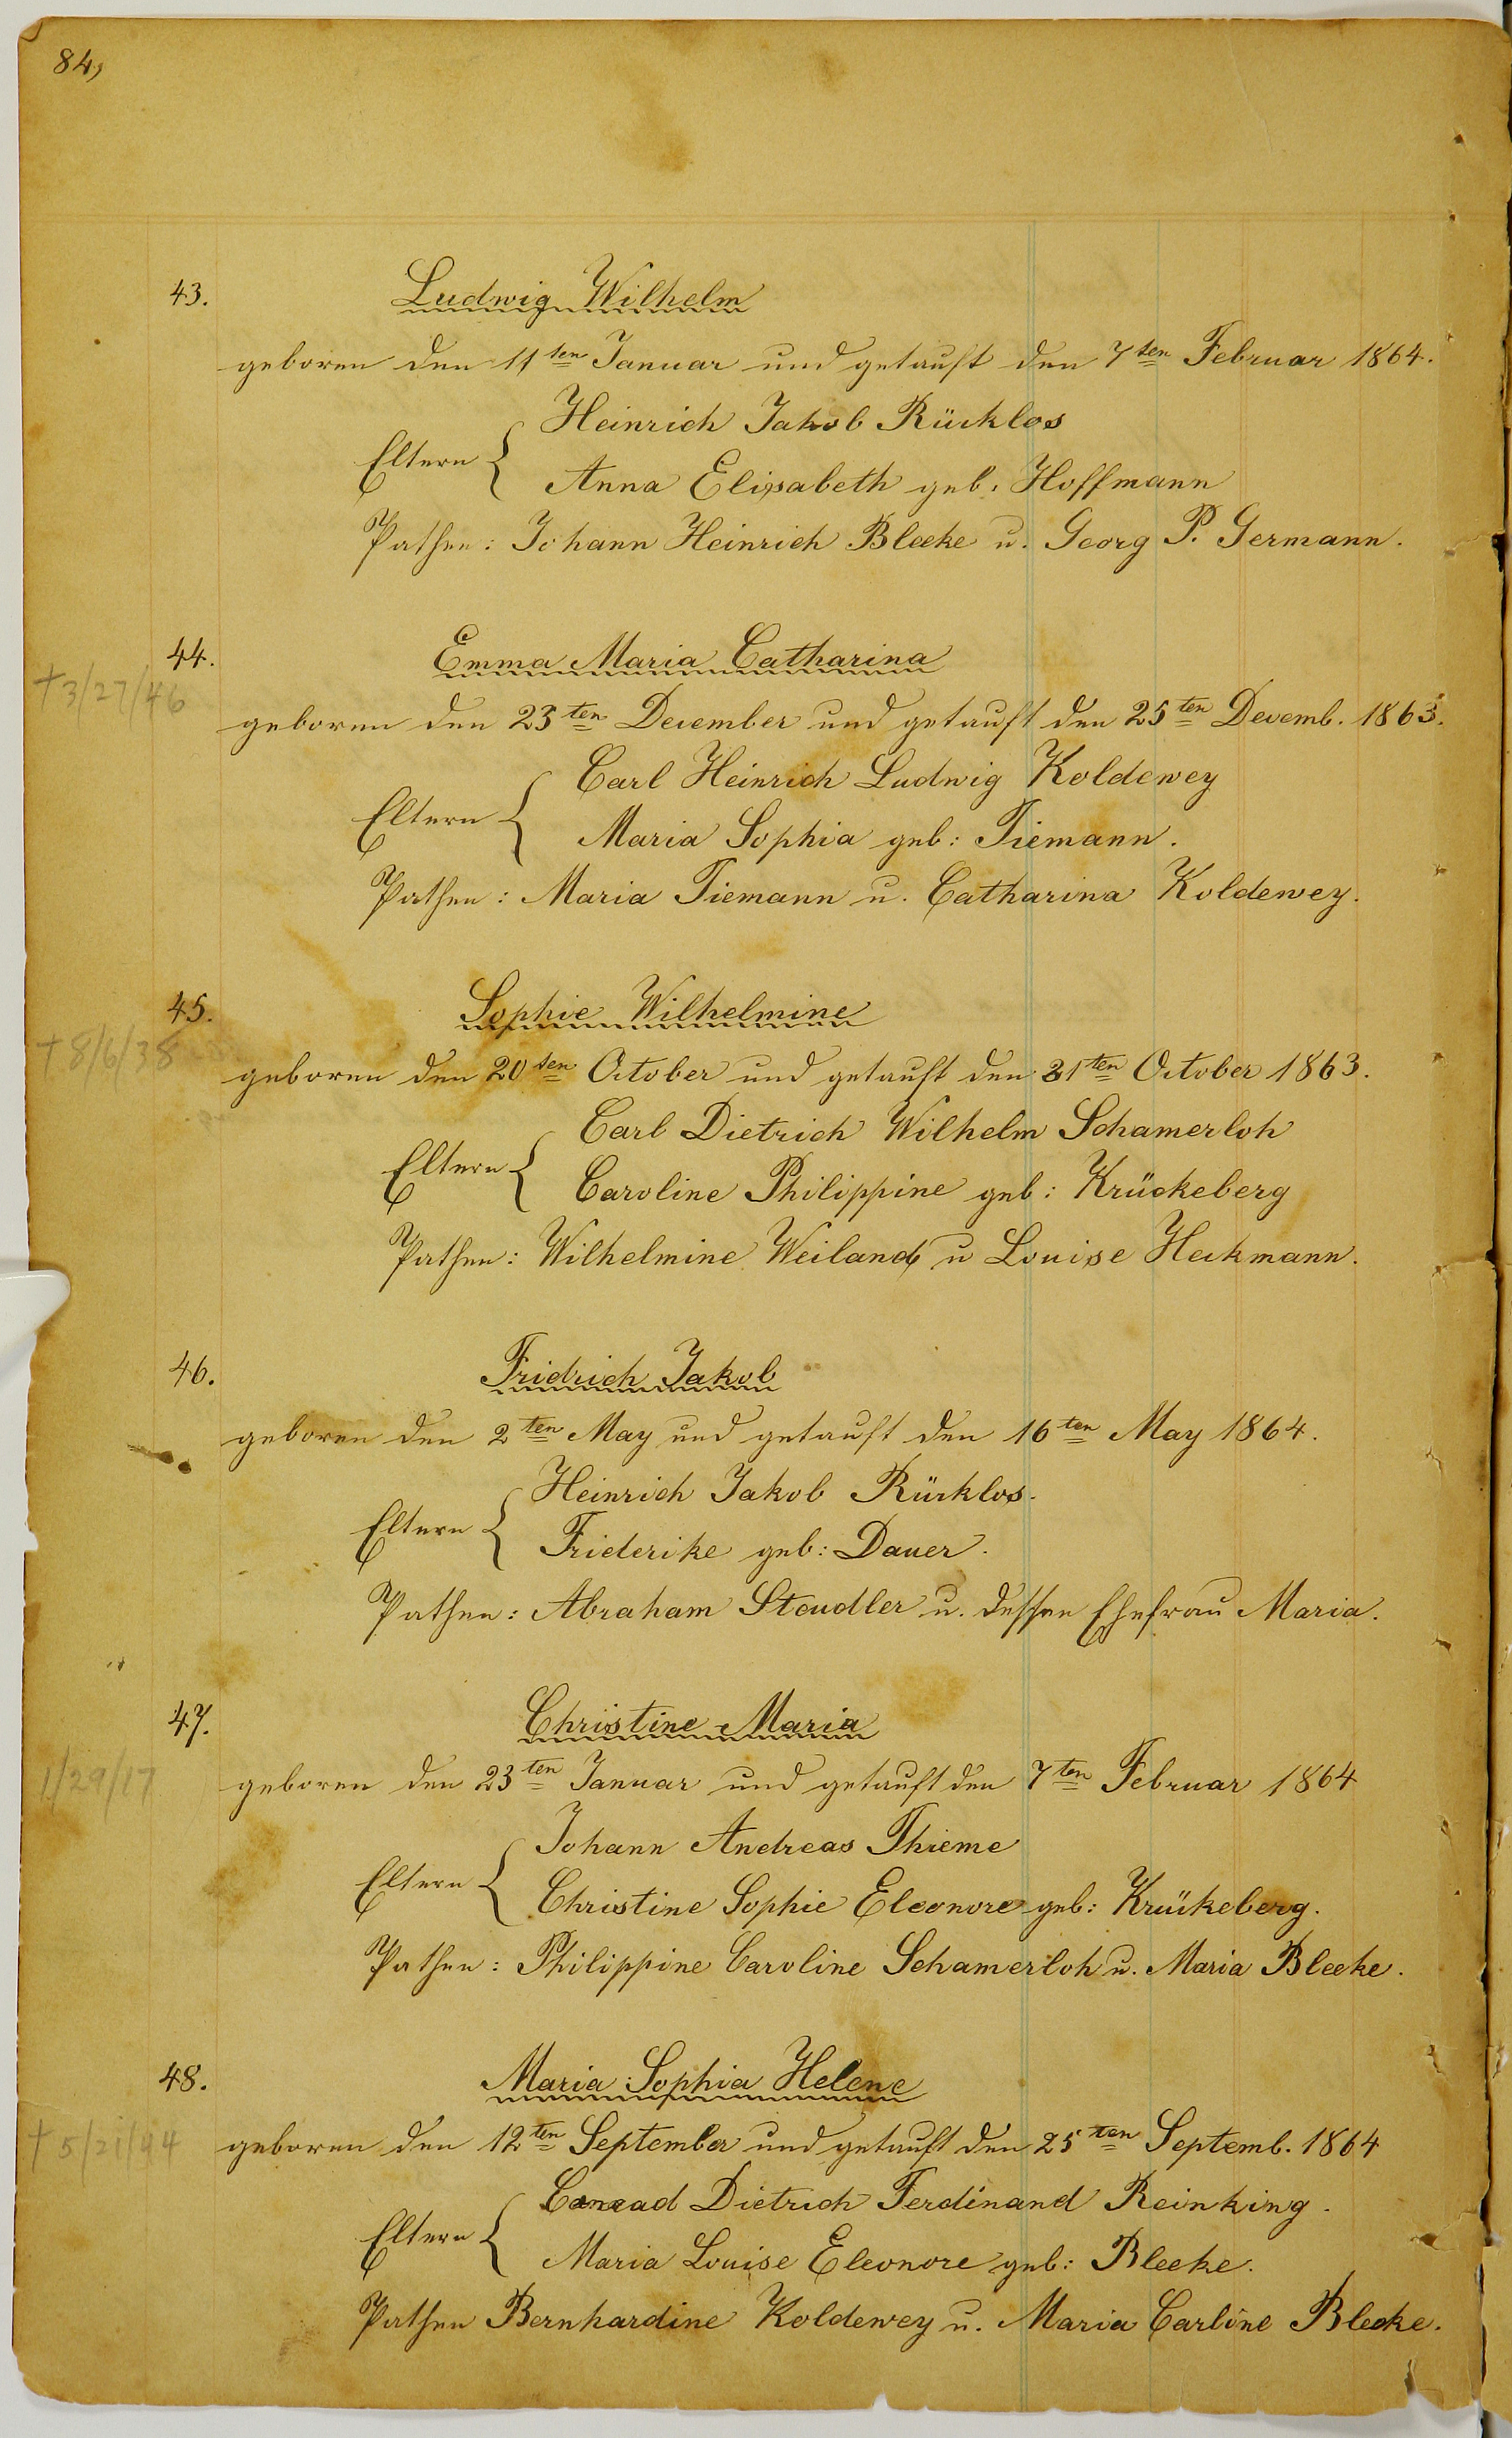 84,
43. Ludwig Wilhelm
geboren den 11ten Januar und getauft den 7ten Februar 1864.
Heinrich Jakob Rücklos
Eltern {
Anna Elisabeth geb: Hoffmann
Pathen: Johann Heinrich Bleeke u. Georg P. Germann.
44. Emma Maria Catharina
†3/27/46
geboren den 23ten December und getauft den 25ten Decemb. 1863.
Carl Heinrich Ludwig Koldewey
Eltern {
Maria Sophia geb: Tiemann.
Pathen: Maria Tiemann u. Catharina Koldewey.
45. Sophie Wilhelmine
†8/6/38
geboren den 20ten October und getauft den 31ten October 1863.
Carl Dietrich Wilhelm Schamerloh
Eltern {
Caroline Philippine geb: Krückeberg
Pathen: Wilhelmine Weiland u Louise Heckmann.
46. Fridrich Jakob
geboren den 2ten May und getauft den 16ten May 1864.
Heinrich Jakob Rücklos.
Eltern {
Friederike geb: Dauer.
Pathen: Abraham Stoudler u. dessen Ehefrau Maria.
47. Christine Maria
1/29/17
geboren den 23ten Januar und getauft den 7ten Februar 1864
Johann Andreas Thieme
Eltern {
Christine Sophie Eleonore geb: Krükeberg.
Pathen: Philippine Caroline Schamerloh u. Maria Bleeke.
48. Maria Sophia Helene
†5/21/44
geboren den 12ten September und getauft den 25ten Septemb. 1864
Conrad Dietrich Ferdinand Reinking.
Eltern {
Maria Louise Eleonore geb: Bleeke.
Pathen Bernhardine Koldewey u. Maria Carline Bleeke.